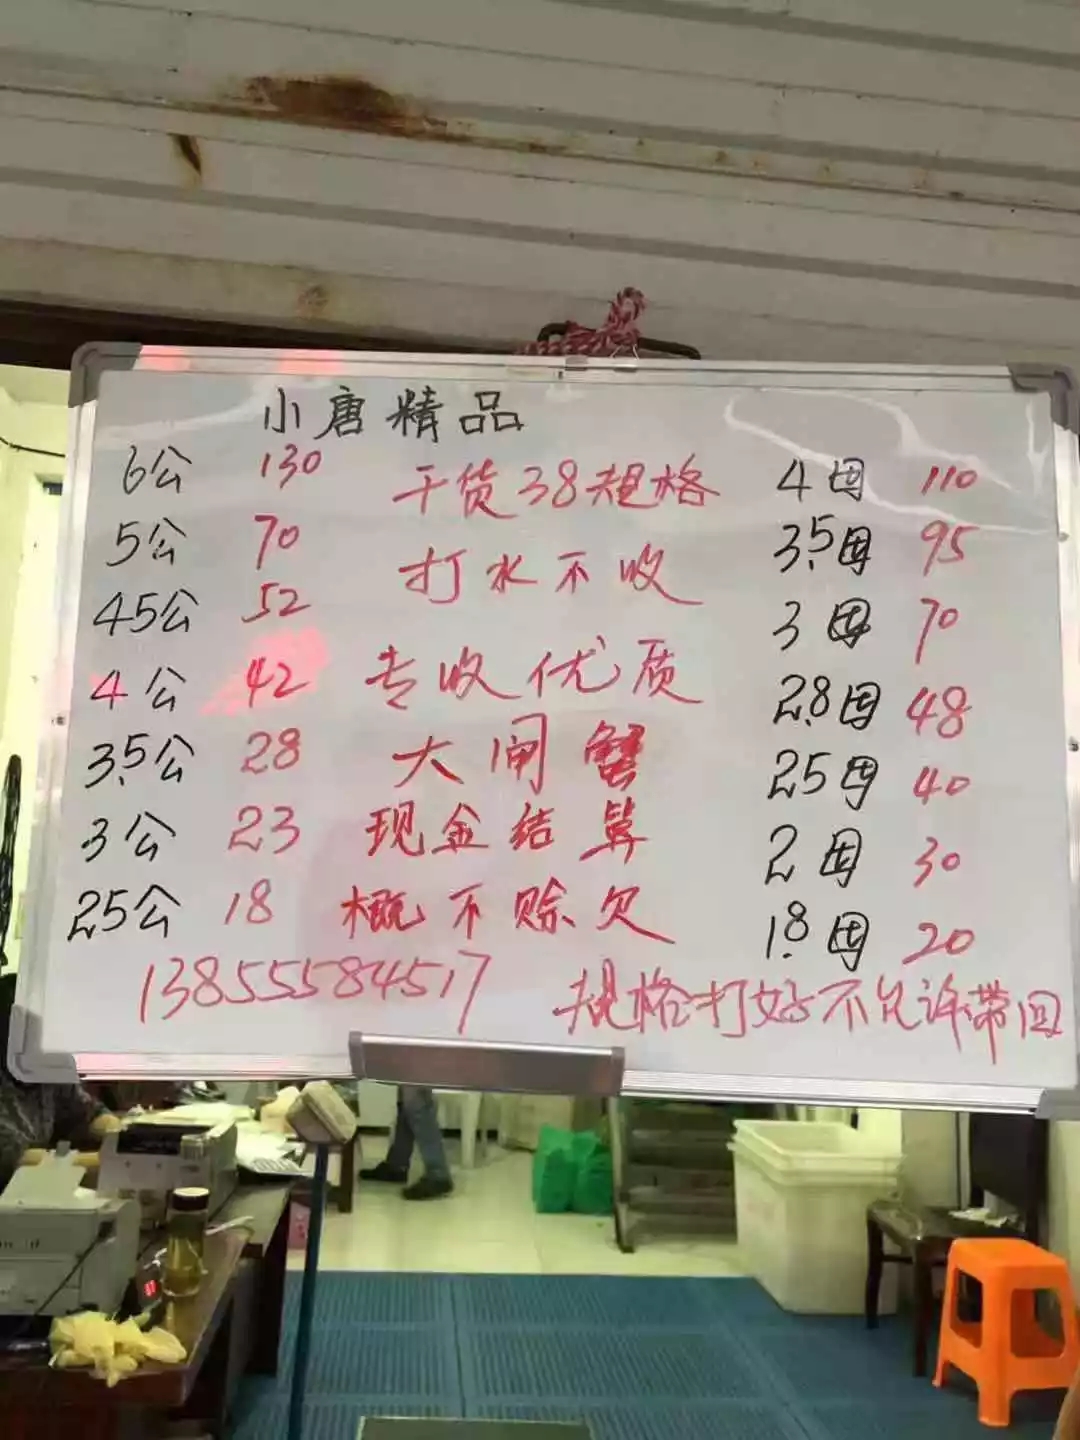 小唐精品
6公 130 干货38规格 4母 110
5公 70 打水不收 3.5母 95
45公 52 3母 70
4公 42 专收优质 2.8母 48
3.5公 28 大闸蟹 25母 40
3公 23 现金结算 2母 30
25公 18 概不赊欠 1.8母 20
13855584517 规格打好不允许带回